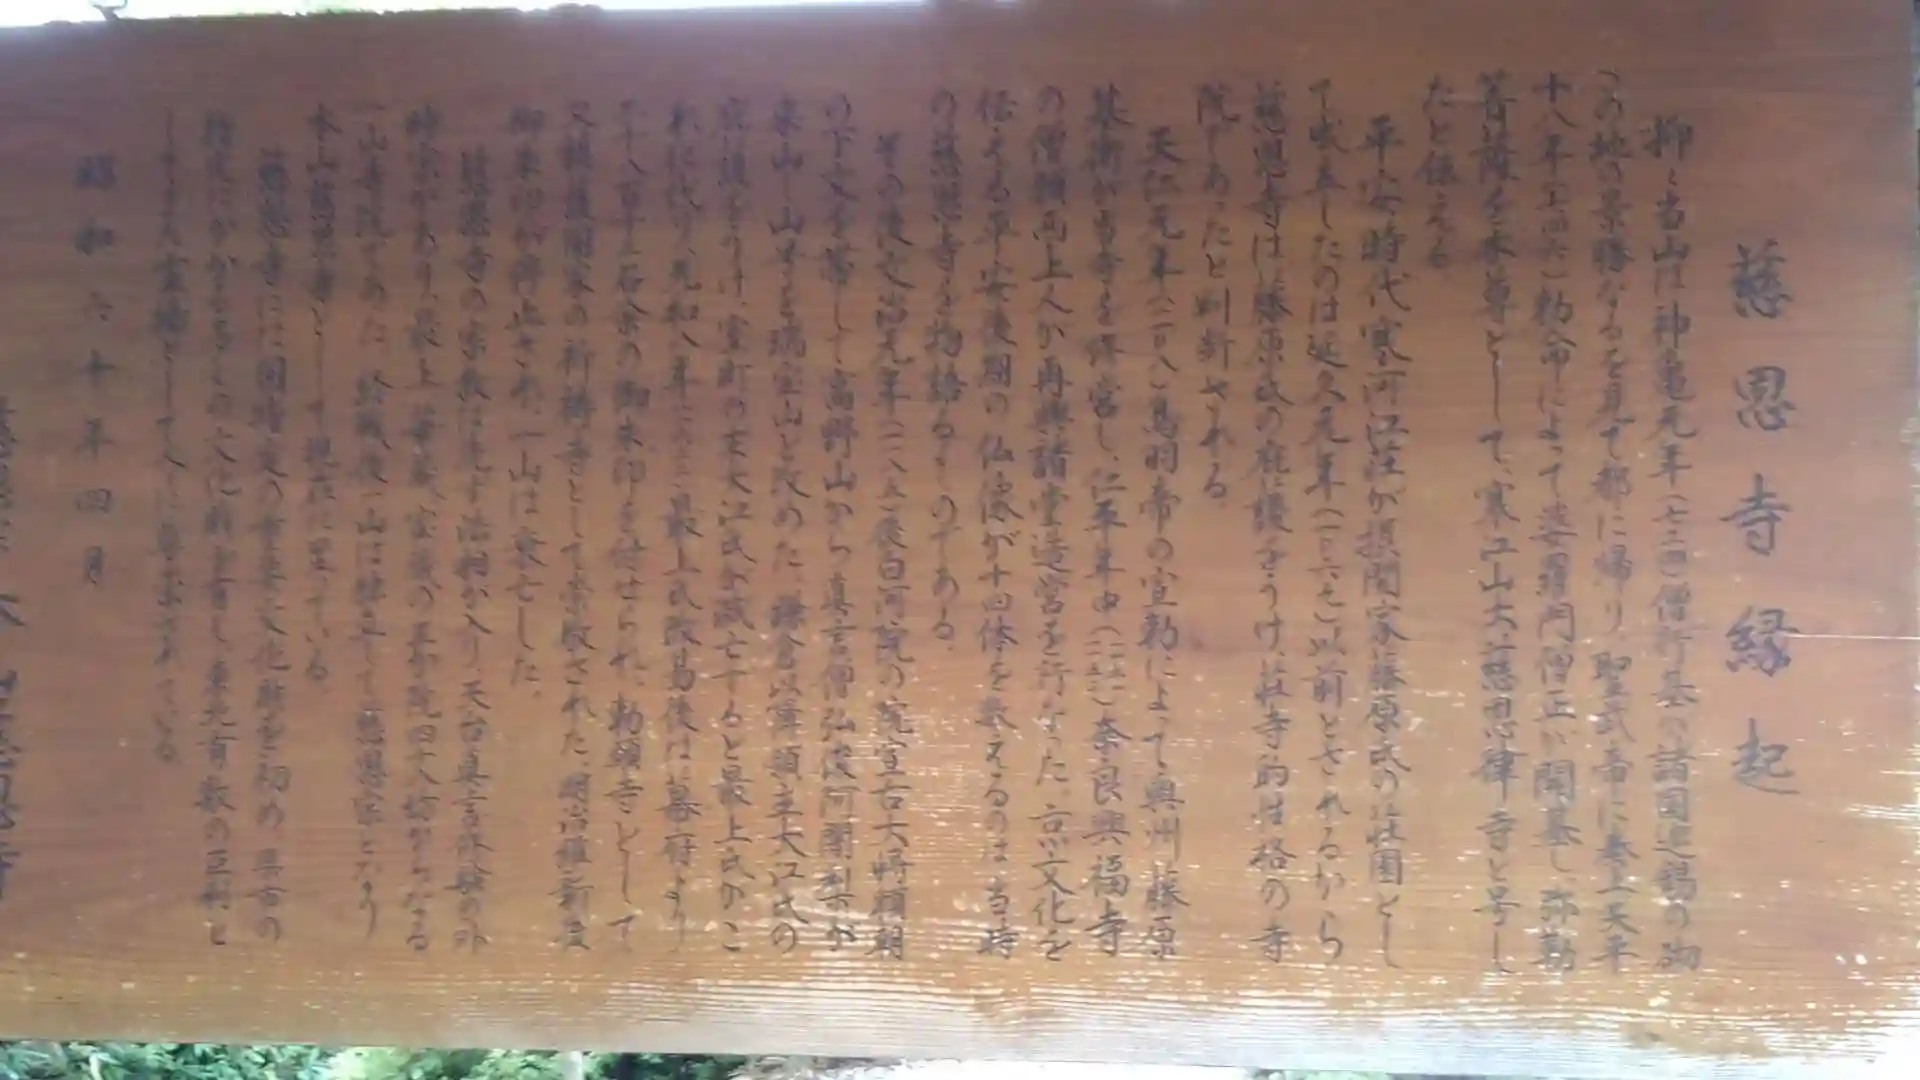 慈恩寺縁起
抑々当山は神亀元年(七二四)僧行基の諸国巡錫の砌
この地の景勝なるを見て都に帰り、聖武帝に奏上天平
十八年(七四六)勅命によって婆羅門僧正が開基し弥勒
菩薩を本尊として、寒江山大慈恩律寺と号し
たと伝える。
平安時代寒河江荘が摂関家藤原氏の荘園とし
て成立したのは延久元年(一〇六九)以前とされるから
慈恩寺は藤原氏の庇護をうけ、荘寺的性格の寺
院であったと判断される。
天仁元年(一一〇八)鳥羽帝の宣勅によって奥州藤原
基衡が当寺を修営し、仁平年中(一一五一)奈良興福寺
の僧願西上人が再興諸堂造営を行なった。京の文化を
伝える平安後期の仏像が十四体を数えるのは当時
の慈恩寺を物語るものである。
その後文治元年(一一八五)後白河院の院宣右大将頼朝
の下文を帯して高野山から真言僧弘俊阿闍梨が
来山し山号を瑞宝山と改めた。鎌倉以降領主大江氏の
庇護をうけ、室町の末大江氏が滅亡すると最上氏がこ
れに代り、元和八年(一六二二)最上氏改易後は幕府より
二千八百十二石余の御朱印を付せられ、勅願寺として
又鎮護国家の祈祷寺として崇敬された。明治維新後
御朱印を停止され、一山は衰亡した。
慈恩寺の宗教は先ず法相が入り、天台真言修験の外
時宗があり、最上華蔵、宝蔵の三か院四十八坊からなる
一山寺院であった。終戦後一山は独立して慈恩宗となり
本山慈恩寺として現在に至っている。
慈恩寺には国指定の重要文化財を初め、県市の
指定にかかる多くの文化財を有し、東北有数の巨刹と
して
昭和六十年四月